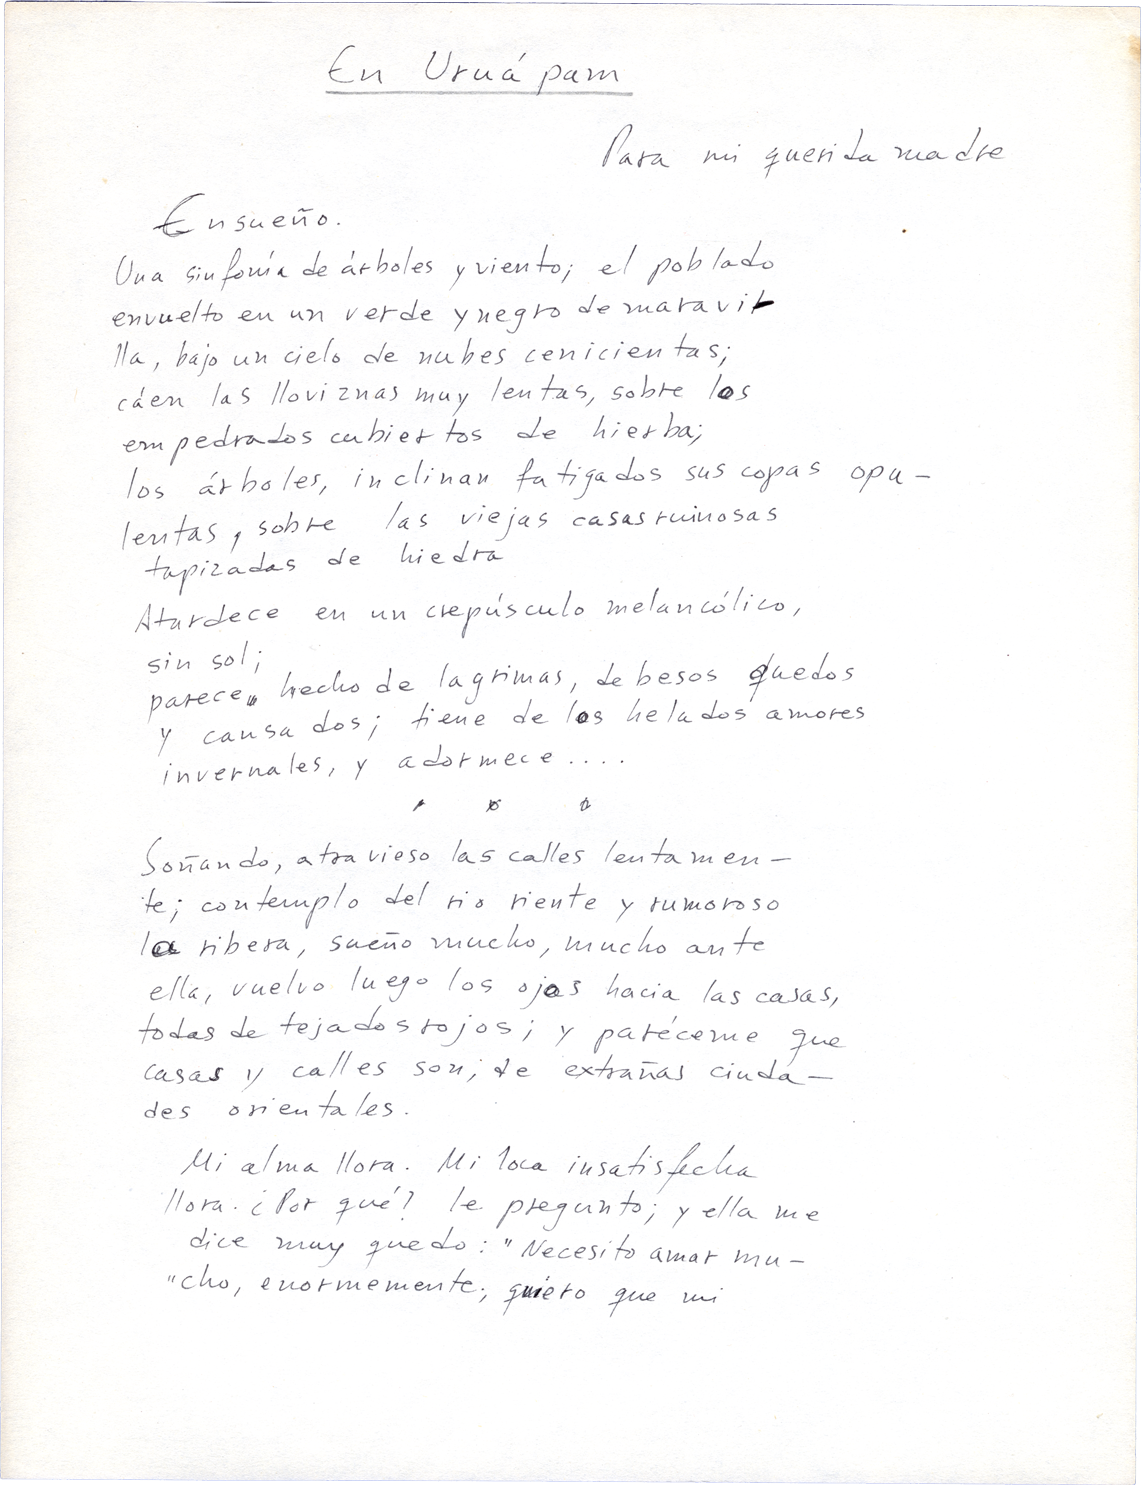 En Uruápam
Para mi querida madre
Ensueño.
Una sinfonía de árboles y viento; el poblado
envuelto en un verde y negro de maravi-
lla, bajo un cielo de nubes cenicientas;
cáen las lloviznas muy lentas, sobre los
empedrados cubiertos de hierba;
los árboles, inclinan fatigados sus copas opu-
lentas, sobre las viejas casas ruinosas
tapizadas de hiedra
Atardece en un crepúsculo melancólico,
sin sol;
parece hecho de lagrimas, de besos quedos
y causados; tiene de los helados amores
invernales, y adormece....
Soñando, atravieso las calles lentamen-
te; contemplo del rio riente y rumoroso
la ribera, sueño mucho, mucho ante
ella, vuelvo luego los ojos hacia las casas,
todas de tejados rojos; y paréceme que
casas y calles son; de extrañas ciuda-
des orientales.
Mi alma llora. Mi loca insatisfecha
llora. ¿Por qué? le pregunto; y ella me
dice muy quedo: "Necesito amar mu-
"cho, enormemente; quiero que mi